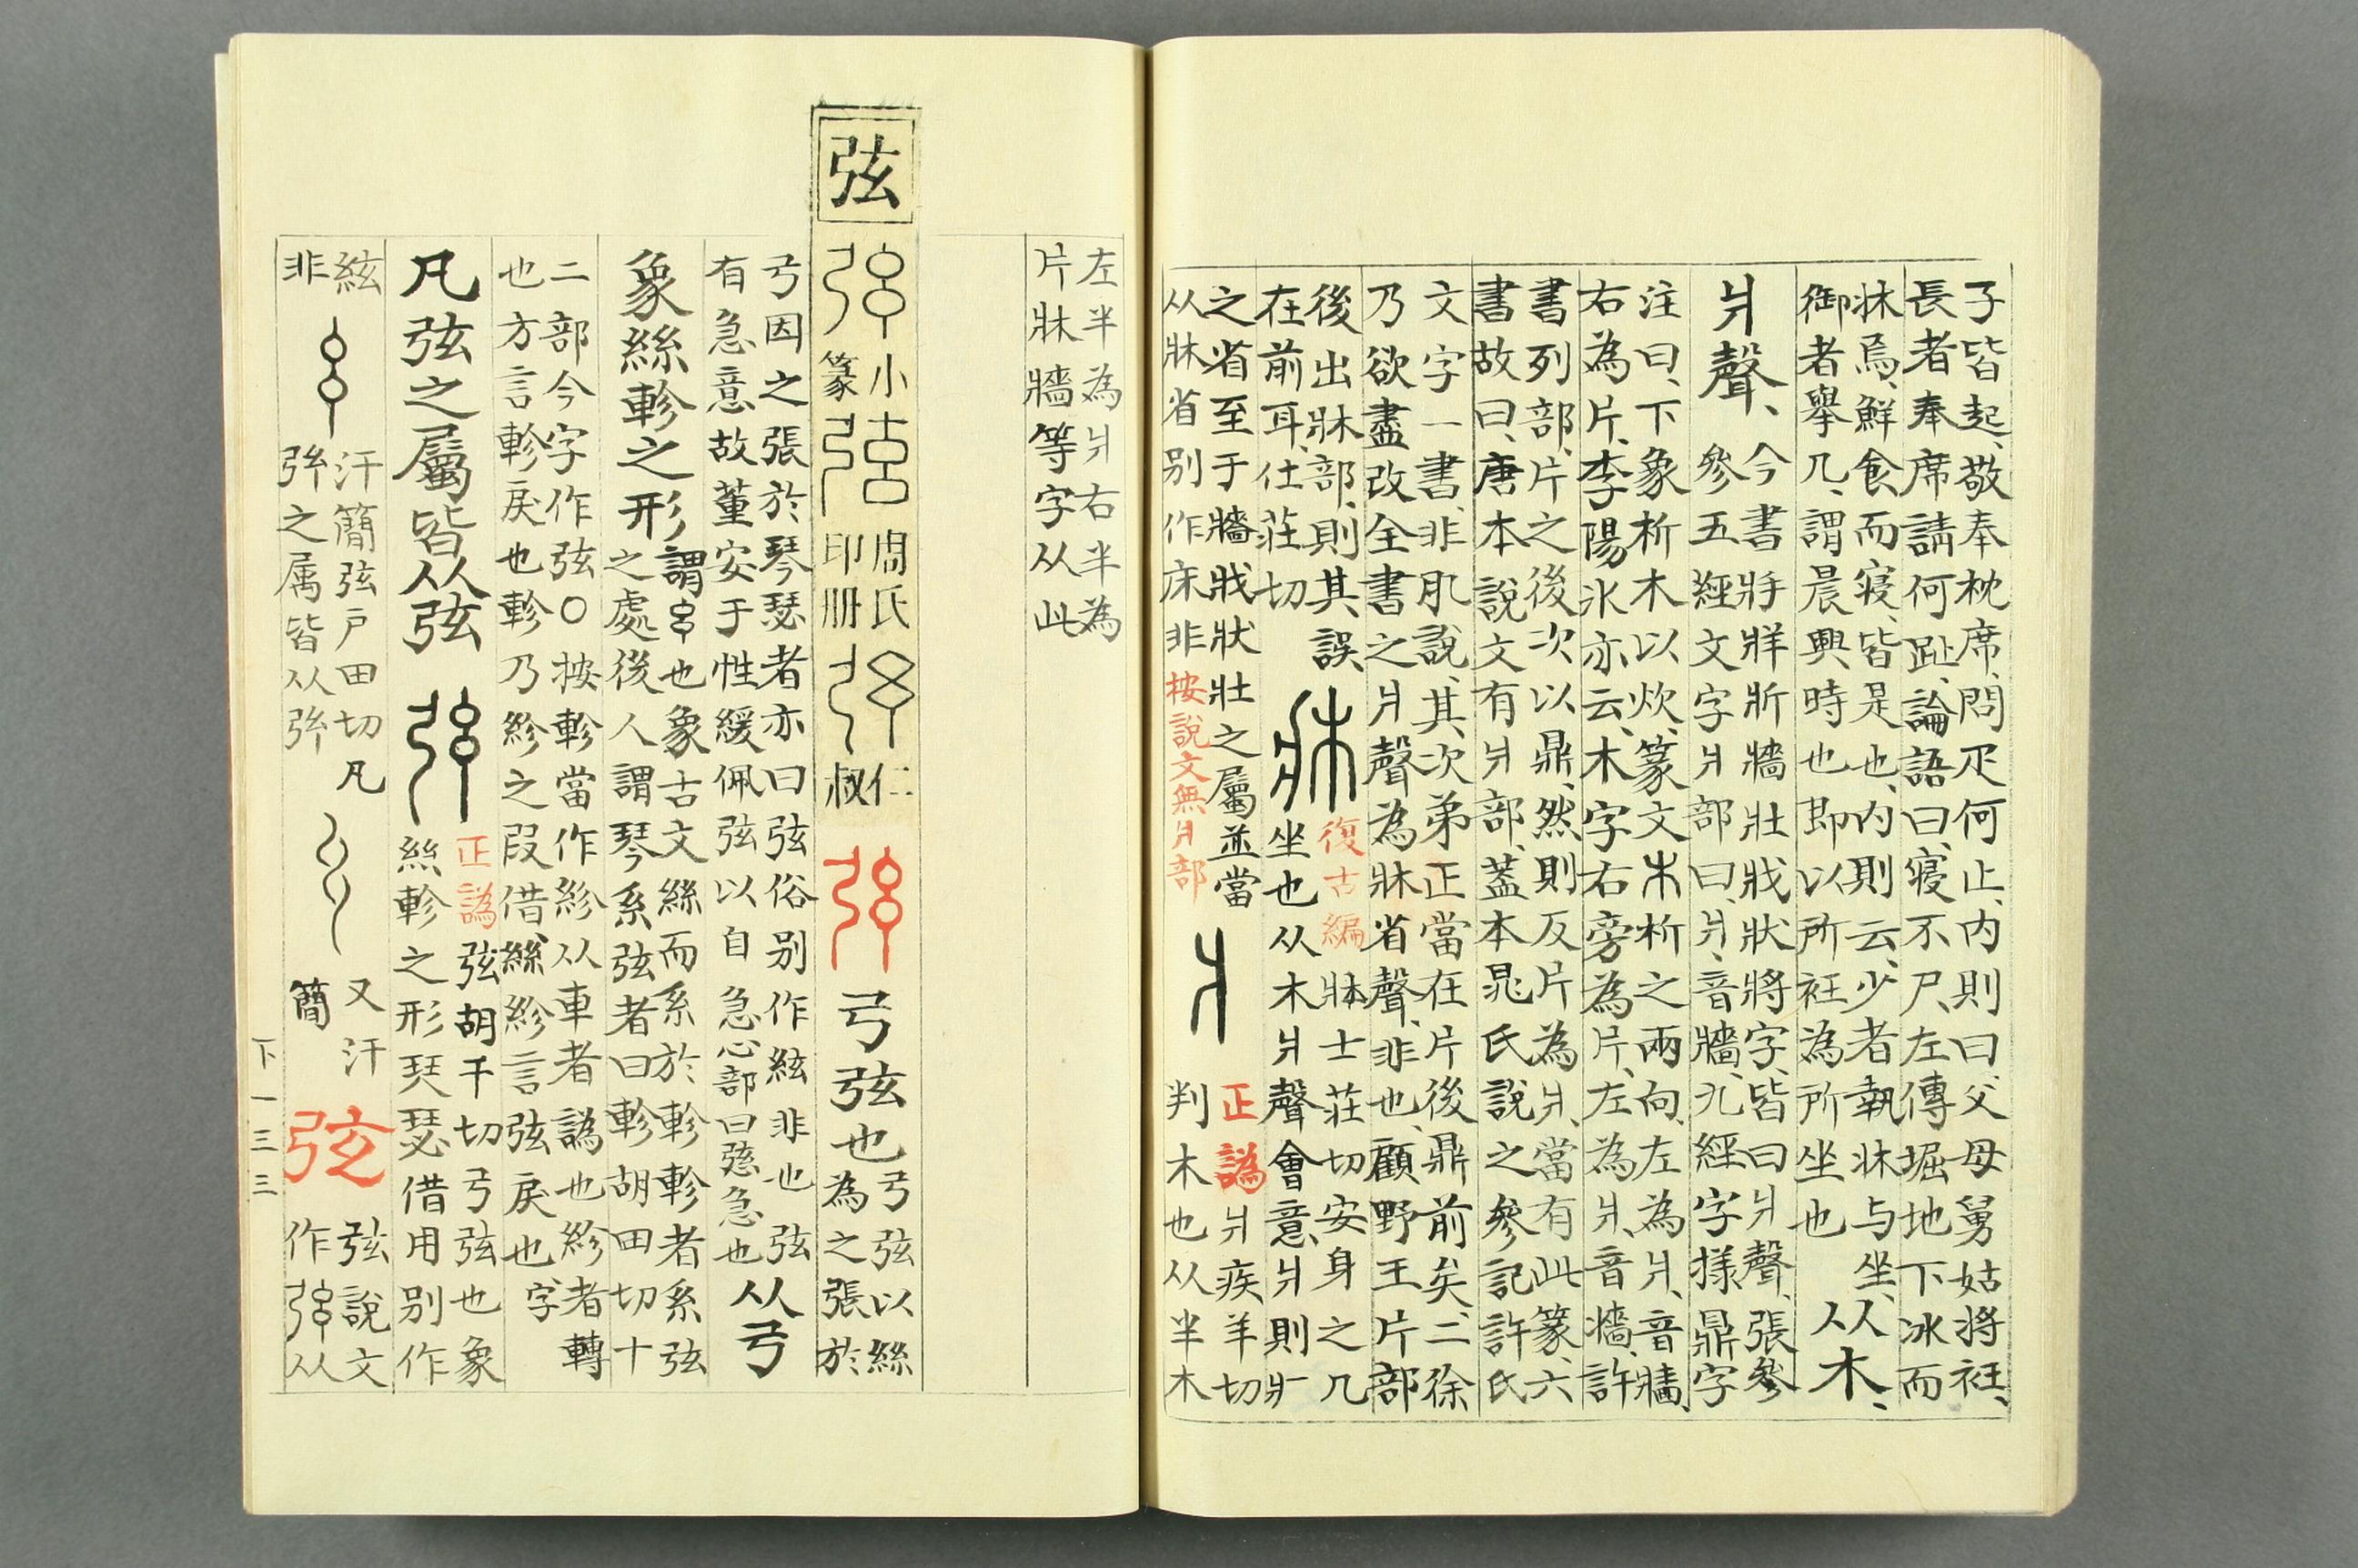 子皆起、敬奉枕席、問疋何止、内則曰、父母舅姑將衽、
長者奉席請何趾、論語曰、寢不尸、左傳堀地下冰而
牀焉、鮮食而寢、皆是也、内則云、少者執牀与坐、
御者舉几、謂晨興時也即以所衽為所坐也
从木、
爿聲、
今書將牂斨牆壯戕狀將字、皆曰爿聲、張參
參五經文字爿部曰、爿、音牆、九經字㨾鼎字
注曰、下象析木以炊、篆文木析之兩向、左為爿、音牆、
右為片、李陽冰亦云、木字右旁為片、左為爿、音牆、許
書列部、片之後次以鼎、然則反片為爿、當有此篆、六
書故曰、唐本說文有爿部、蓋本晁氏說之參記許氏
文字一書、非肊說、其次弟正當在片後鼎前矣、二徐
乃欲盡改全書之爿聲為牀省聲、非也、顧野王片部
後出牀部、則其誤
在前耳、仕莊切
復古編 牀士莊切安身之几
坐也从木爿聲會意、爿則爿
之省至于牆戕狀壯之屬並當
从牀省别作床非按說文無爿部
正譌 爿疾羊切
判木也从半木
左半為爿右半為
片牀牆等字从此
弦
小篆
周氏印册
仁叔
弓弦也
弓弦以絲
為之張於
弓因之張於琴瑟者亦曰弦俗别作絃非也
有急意故董安于性緩佩弦以自急心部曰㥛急也
弦从弓
象絲軫之形
謂也象古文絲而系於軫軫者系弦
之處後人謂琴系弦者曰軫胡田切十
二部今字作弦〇按軫當作紾从車者譌也紾者轉
也方言軫戾也軫乃紾之叚借、絲紾言弦戾也字
凡弦之屬皆从弦
正譌 弦胡千切弓弦也象
絲軫之形琴瑟借用别作
絃
非
汗簡弦戸田切凡
弦之属皆从弦
又汗
簡
弦
弦說文
作从
下一三三